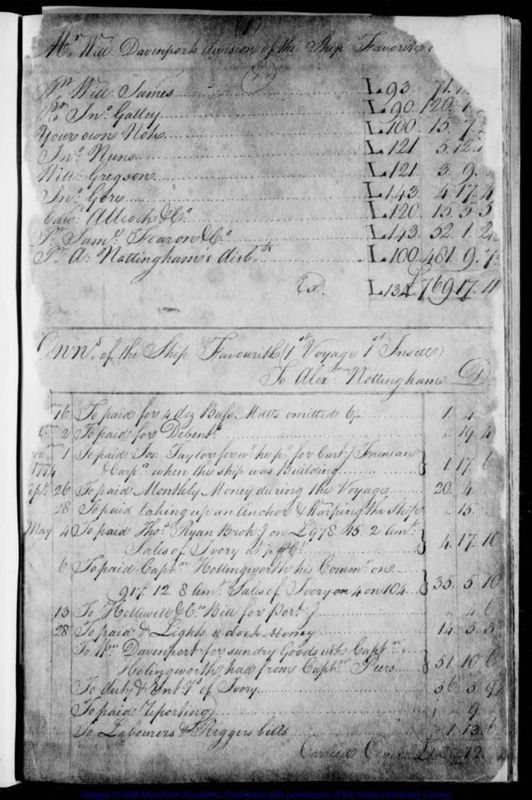 (1)
Mr Will Davenports division of the Ship Favorite
Pr Will James L93 71.
Pr Jno Galley L90 129. 1
Your own Note L100 15. 7
Jno Nuns L121 5. 12
Will Gregson L121 3. 9.
Jno Gore L143 4. 17. 4
Edwd Allcock & Co L120 15. 5. 5
Pr Saml Fearon & Co L143 52. 1. 2
Pr A: Nottingham's disbts L100 481. 9. 7
Ex. L134 £769. 17. 11
Own's of the Ship Favourite (1st Voyage 1st Insett)
To Alexr Nottingham Dr
To paid for 4 doz Bass Matts omitted 1
2 To paid for Debents 19. 4
1 To paid Jos. Taylor for
1774 Carpr when the ship was Building 1. 17. 6
26 To paid Monthly Money during the Voyage 20. 4
28 To paid taking up an Anchor & Warping the Ship 15.
May 4 To paid Thos Ryan Brok. on £978. 15. 2 amt
Sales of Ivory 4. 17. 10
6 To paid Captn Hollingworth his Commn on
917. 12. 8 amt Sales of Ivory on 4 on 104 35. 5. 10
13 To & Co Bill for Port. 4. 6
28 To paid Lights & dock Money 14. 5. 3
To Wm Davenport for sundry Goods wch Captn
Holingworth had from Captn Peers 51. 10. 6
To duty & of Ivory 56. 5. 9
To paid reporting 9
To Labourers & Riggers bills 1. 13. 6
Carried Over